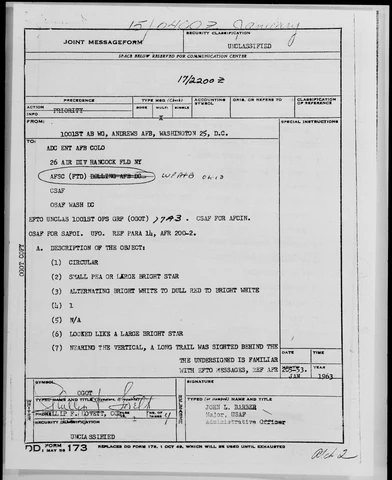 15/0400Z January
JOINT MESSAGEFORM
SECURITY CLASSIFICATION
UNCLASSIFIED
SPACE BELOW RESERVED FOR COMMUNICATION CENTER
17/2200Z
PRECEDENCE
TYPE MSG (Check)
ACCOUNTING SYMBOL
ORIG. OR REFERS TO
CLASSIFICATION OF REFERENCE
ACTION
PRIORITY
BOOK
MULTI
SINGLE
INFO
X
FROM:
SPECIAL INSTRUCTIONS
1001ST AB WG, ANDREWS AFB, WASHINGTON 25, D.C.
TO:
ADC ENT AFB COLO
26 AIR DIV HANCOCK FLD NY
AFSC (FTD) BOLLING AFB DC WPAFB Ohio
CSAF
OSAF WASH DC
EFTO UNCLAS 1001ST OPS GRP (OGOT) 7A3. CSAF FOR AFCIN.
OSAF FOR SAFOI. UFO. REF PARA 14, AFR 200-2.
A. DESCRIPTION OF THE OBJECT:
(1) CIRCULAR
(2) SMALL PEA OR LARGE BRIGHT STAR
(3) ALTERNATING BRIGHT WHITE TO DULL RED TO BRIGHT WHITE
(4) 1
(5) N/A
(6) LOOKED LIKE A LARGE BRIGHT STAR
(7) NEARING THE VERTICAL, A LONG TRAIL WAS SIGHTED BEHIND THE
THE UNDERSIGNED IS FAMILIAR
WITH EFTO MESSAGES, REF AFR 205-53.
OGOT COPY
DATE
TIME
MONTH
YEAR
JAN
1963
SYMBOL
OGOT
SIGNATURE
TYPED NAME AND TITLE
PHILLIP F.
TYPED (or stamped) NAME AND TITLE
JOHN L. BARBER
Major, USAF
Administrative Officer
SECURITY CLASSIFICATION
UNCLASSIFIED
DD FORM 1 MAY 55 173
REPLACES DD FORM 173, 1 OCT 49, WHICH WILL BE USED UNTIL EXHAUSTED